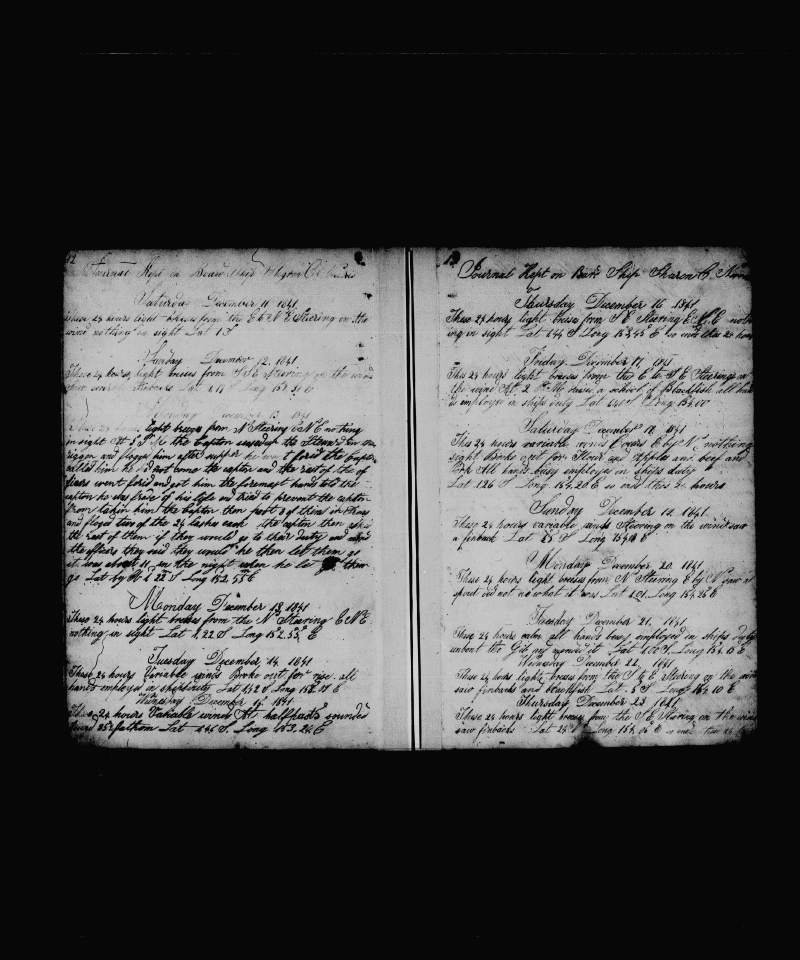 Journal Kept on Board Ship
Saturda December 11 1841
these 24 hours light breses from the E b N E Steering on the
wind nothing in sight Lat 1 S
Sunday December 12 1841
These 24 hours light breses from S E Steering on the wind
Lat Long 154 E
13 1841
These 24 light breses from N Steering E N E nothing
in sight At 5 P M the Capton the Steard in
rigger and floged him after supper he went forid the Capton
called him he did not come the capton and the rest of the of
fiars went forid and got him the foremast hands told the
capton he was fraid of his life and tried to prevent the capton
from takin him the Capton then put 3 of them in Irons
and floged two of the 24 lashes each the capton then asked
the rest of them if they would go to their duty and
the officers they said they would he then let them go
it was about 11 in the night when he let them
go Lat by 22 S Long 152,55 E
Monday December 13 1841
These 24 hours light breses from the N Steering E N E
nothing in sight Lat 1,22 S Long 152,55 E
Tuesday December 14, 1841
These 24 hours Variable winds Broke out for rise all
hands employd in shipsduty Lat S Long E
Wensday December 15 1841
These 24 hours Variable winds At halfpast sounded
35 fathom Lat S, Long 153,24 E
13
Journal Kept on Bard Ship Sharon C
Thursday December 16 1841
These 24 hours light breses from S E Steering E N E noth
ing in sight Lat 144 S Long 153,45 E so ends this 24 hours
Friday December 17, 1841
These 24 hours light breses from the E to S E Steering on
the wind At 2 P M raise a school of Blackfish all hands
is employed in ships duty Lat Long 154,00
Saturday December 18 1841
This 24 hours variable winds E by N nothing
sight Broke out for Flour and Apples and beef and
Pork All hands busy employed in ships duty
Lat 126 S Long 154,20 E so ends this 24 hours
Sunday December 19, 1841
These 24 hours variable winds Steering on the wind saw
a finback Lat S Long E
Monday December 20 1841
These 24 hours light breses from N Steering E by N saw a
spout did not no what it was Lat 1,01, Long 154,26 E
Tuesday December 21, 1841
These 24 hours calm all hands bussy employed in ships duty
unbent the Gib and mended it Lat S, Long 154,15 E
Wednesday December 22, 1841
These 24 hours light breses from the S E Steering on the wind
saw finbacks and blackfish Lat , S Long 154, 10 E
Thursday December 23 1841
These 24 hours light breses from the S E Steering on the wind
saw finbacks Lat 24 S Long 154, 06 E so ends this 24